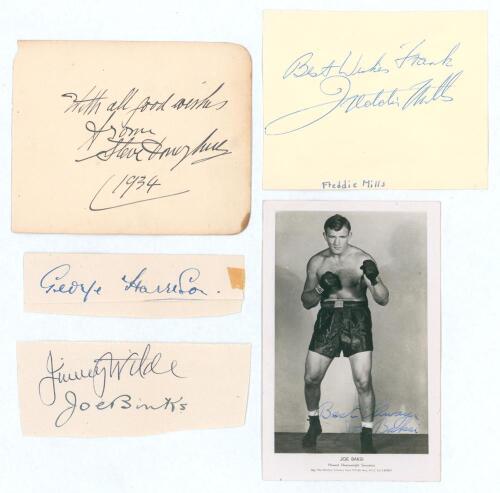 With all good wishes
from
Steve Donoghue
1934
Best Wishes Frank
Freddie Mills
Freddie Mills
George Harrison.
Jimmy Wilde
Joe Binks
Best Always
Joe Baksi
JOE BAKSI
Heavyweight Sensation